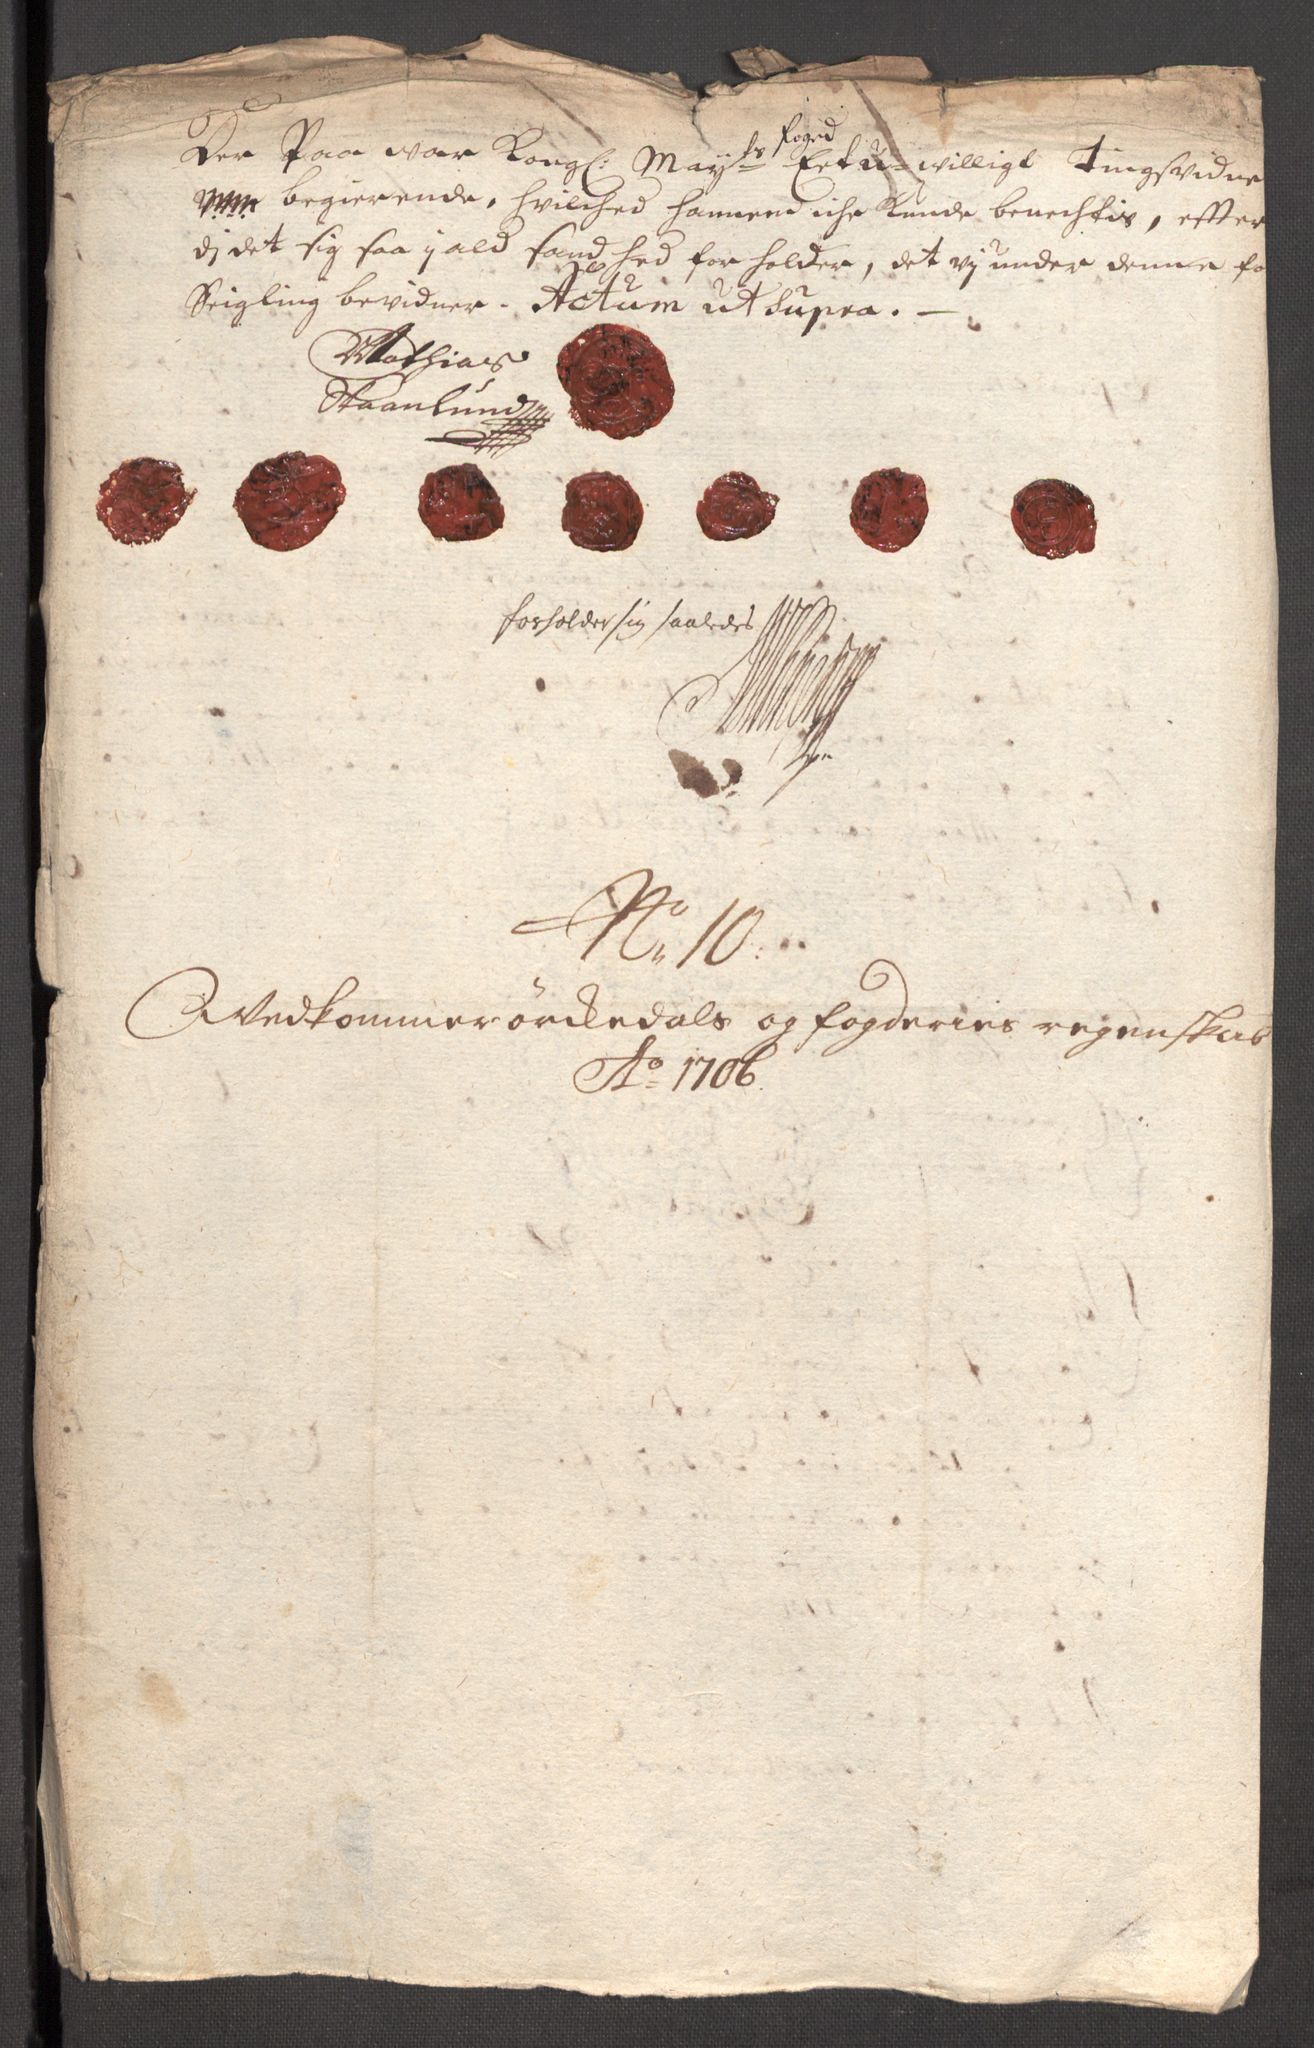 Der Paa war Kongl: Mayts foged Eet u-willigt Tingsvidne
begierende, hvilched hannem iche Kunde benechtis, effter
dj det sig saa j ald sandhed forholder, det vj under denne fo
Seigling bevidner. Actum ut Supra. -
Mathias
Skaanlund
forholder sig saaledes
No 10:
Vedkommer örckedals og fogderies regenskab
Ao 1706.